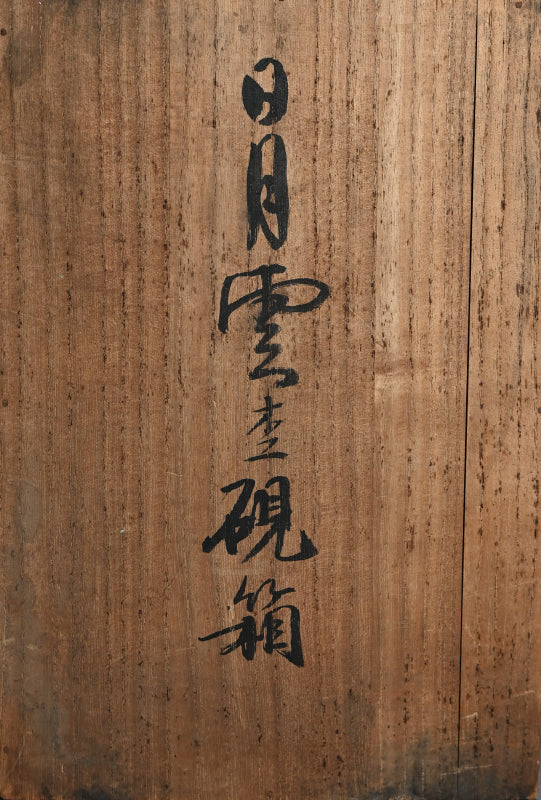 日月雲
硯箱